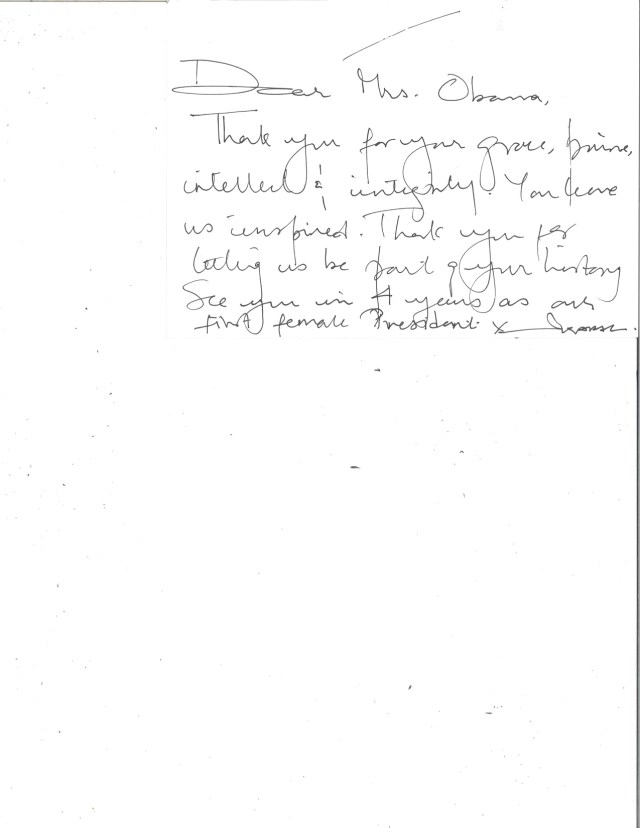 Dear Mrs. Obama,
Thank you for your grace,
intellect & integrity. You leave
us inspired. Thank you for
letting us be part of your history
See you in 4 years as our
first female President. x